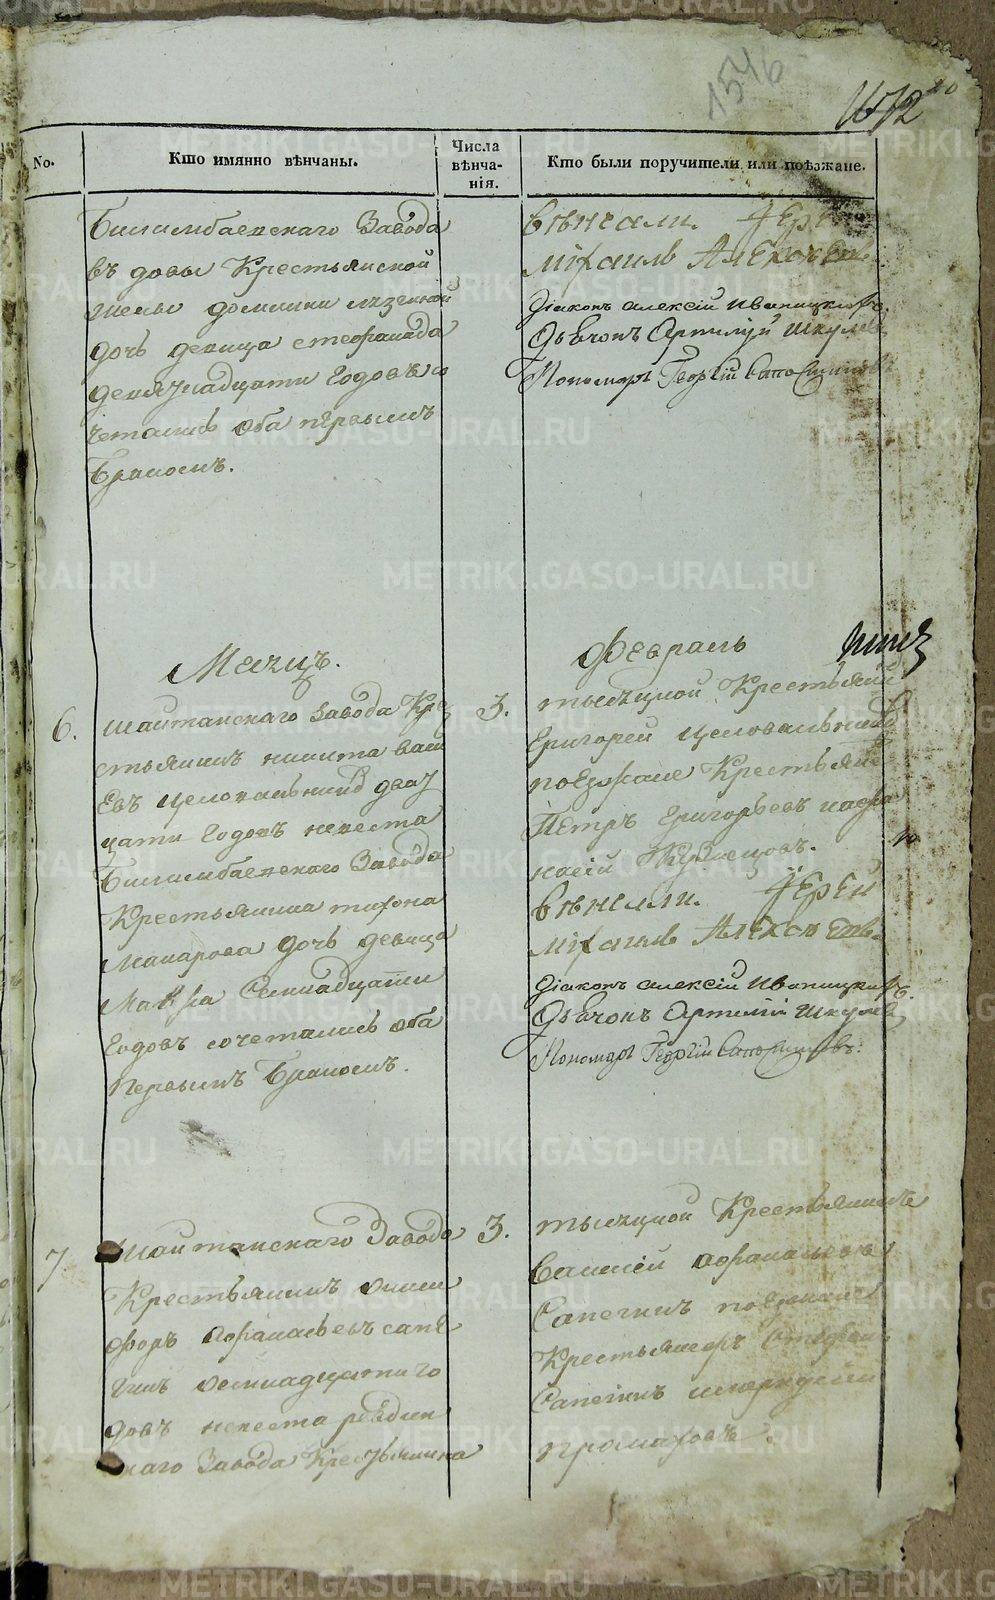 1546
1672
No.
Кто имянно вѣнчаны.
Числа
вѣнча-
нія.
Кто были поручители или поѣзжане.
Билимбаевскаго Завода
въ довы Крестьянской
жены
дочь девица стефанида
девятнадцати Годовъ со
четались оба первымъ
Бракомъ.
вѣнчали. Іерей
міхаилъ
Діаконъ алексій Иваницкихъ
Дьячок Артемій
Пономарь Георгій
Месяцъ.
Февраль
6.
Шайтанскаго Завода Кре
стьянинъ никита васи
Евъ Целовальниковъ двад
цати Годовъ невеста
Билимбаевскаго Завода
Крестьянина тихона
макарова дочь девица
Семнадцати
Годовъ сочетались оба
первымъ Бракомъ.
3.
тысяцкой Крестьянинъ
Григорей Целовальниковъ
поезжане Крестьяне
Петръ Григорьевъ и афа
насій Кузнецовъ.
вѣнчали. Іерей
міхаилъ
Діаконъ алексій Иваницкихъ
Дьячок Артемій
Пономарь Георгій
7
Шайтанскаго Завода
Крестьянинъ Ники
форъ Афанасьевъ сапе
гинъ осмнадцати го
довъ невеста ревдин
скаго Завода Крестьянина
3.
тысяцкой Крестьянинъ
Василей Афанасьевъ
Сапегинъ поезжане
Крестьяне
Сапегинъ
METRIKI.GASO-URAL.RU